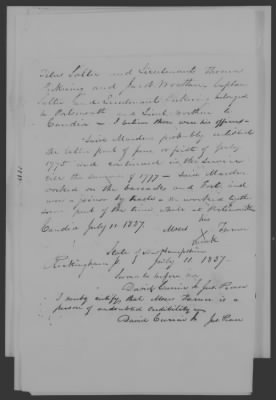 Titus Salter and Lieutenants Thomas
Pickering and Jacob Worthen, Captain
Salter and Lieutenant Pickering belonged
to Portsmouth and Lieut. Worthen to
Candia – I believe these were his officers –
Said Marden probably enlisted
the latter part of June or first of July
1775 and continued in the service
till the summer of 1777 – Said Marden
worked on the Barracks and Fort, and
was a joiner by trade – He worked with
some part of the time while at Portsmouth
Candia July 11 1837. Moses his X mark Turner
State of New Hampshire
Rockingham ss July 11. 1837.
Sworn to before me
David Currier Jr Jus. Peace
I hereby certify, that Moses Turner is a
person of undoubted credibility
David Currier Jr Jus. Peace